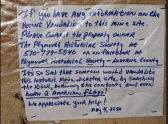 If you have any information on the
Recent Vandalism to this mine site,
Please contact the property owner
The Plymouth Historical Society at
570-779-5840 or on Facebook at
Plymouth Historical Society - Luzerne County
It's so sad that someone would vandalize
this historic mine, disaster site, by smashing
the block, burning the contents and even
burn a American FLAG!
We appreciate your help!
May 4, 2020